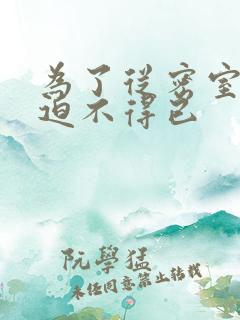 為了從密室
迫不得已
阮學猛
未任同意禁止轉載